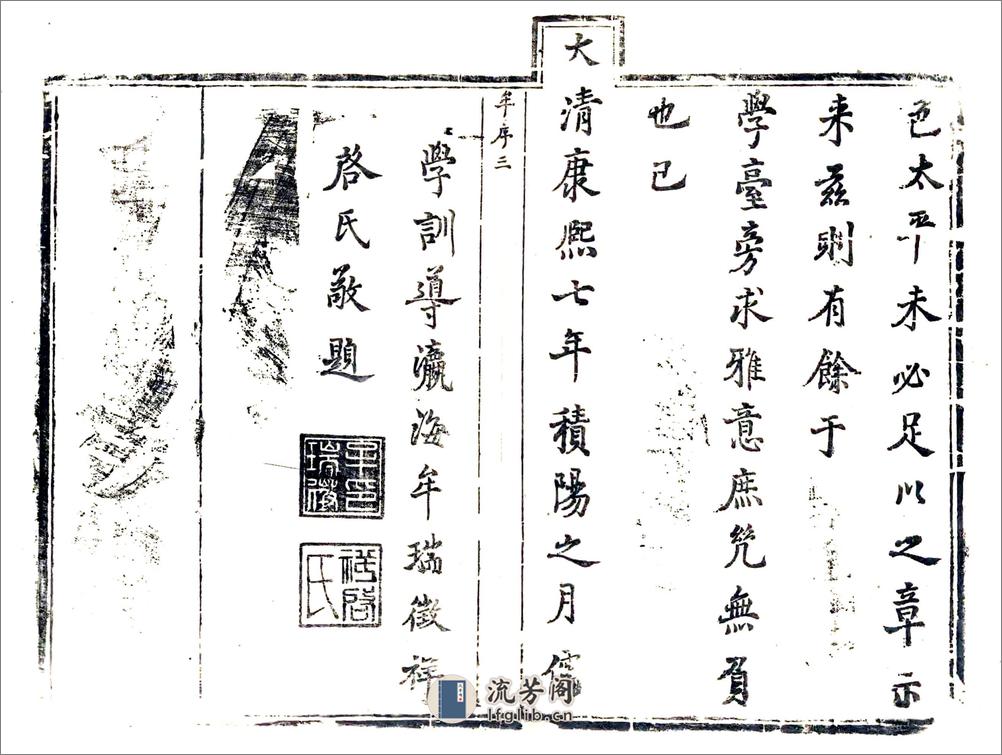 色太平未必足以之章示
来茲則有餘于
學臺旁求雅意庶㡬無負
也已
大清康熙七年積陽之月儒
牟序三
學訓導瀛海牟瑞徵祥
啓氏敬題
牟印瑞徵
祥啓氏
流芳阁
lfglib.cn